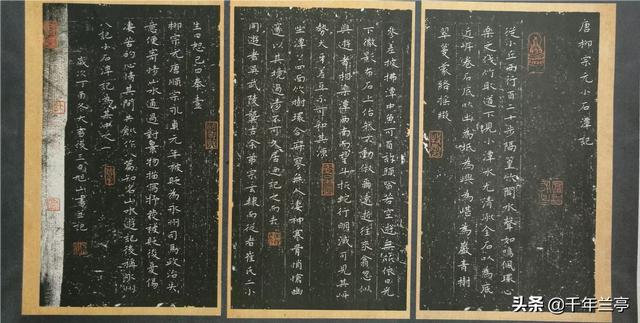 唐柳宗元小石潭記
從小丘西行百二十步隔篁竹聞水聲如鳴佩環心
樂之伐竹取道下見小潭水尤清洌全石以為底
近岸卷石底以出為坻為嶼為嵁為巖青樹
翠蔓蒙絡搖綴
參差披拂潭中魚可百許頭皆若空遊無所依日光
下徹影布石上佁然不動俶爾遠逝往來翕忽似
與遊者相樂潭西南而望斗折蛇行明滅可見其岸
勢犬牙差互不可知其源
坐潭上四面竹樹環合寂寥無人淒神寒骨悄愴幽
邃以其境過清不可久居乃記之而去
同遊者吳武陵龔古余弟宗玄隸而從者崔氏二小
生曰恕己曰奉壹
柳宗元唐順宗永貞元年被貶為永州司馬政治失
意便寄抒山水通過對景物描寫抒發被貶後憂傷
淒苦的心情其間共創作八篇知名山水遊記後稱永州
八記小石潭記為其中之一
歲次丁酉冬大雪後三日旭山書並記
头条 @千年兰亭